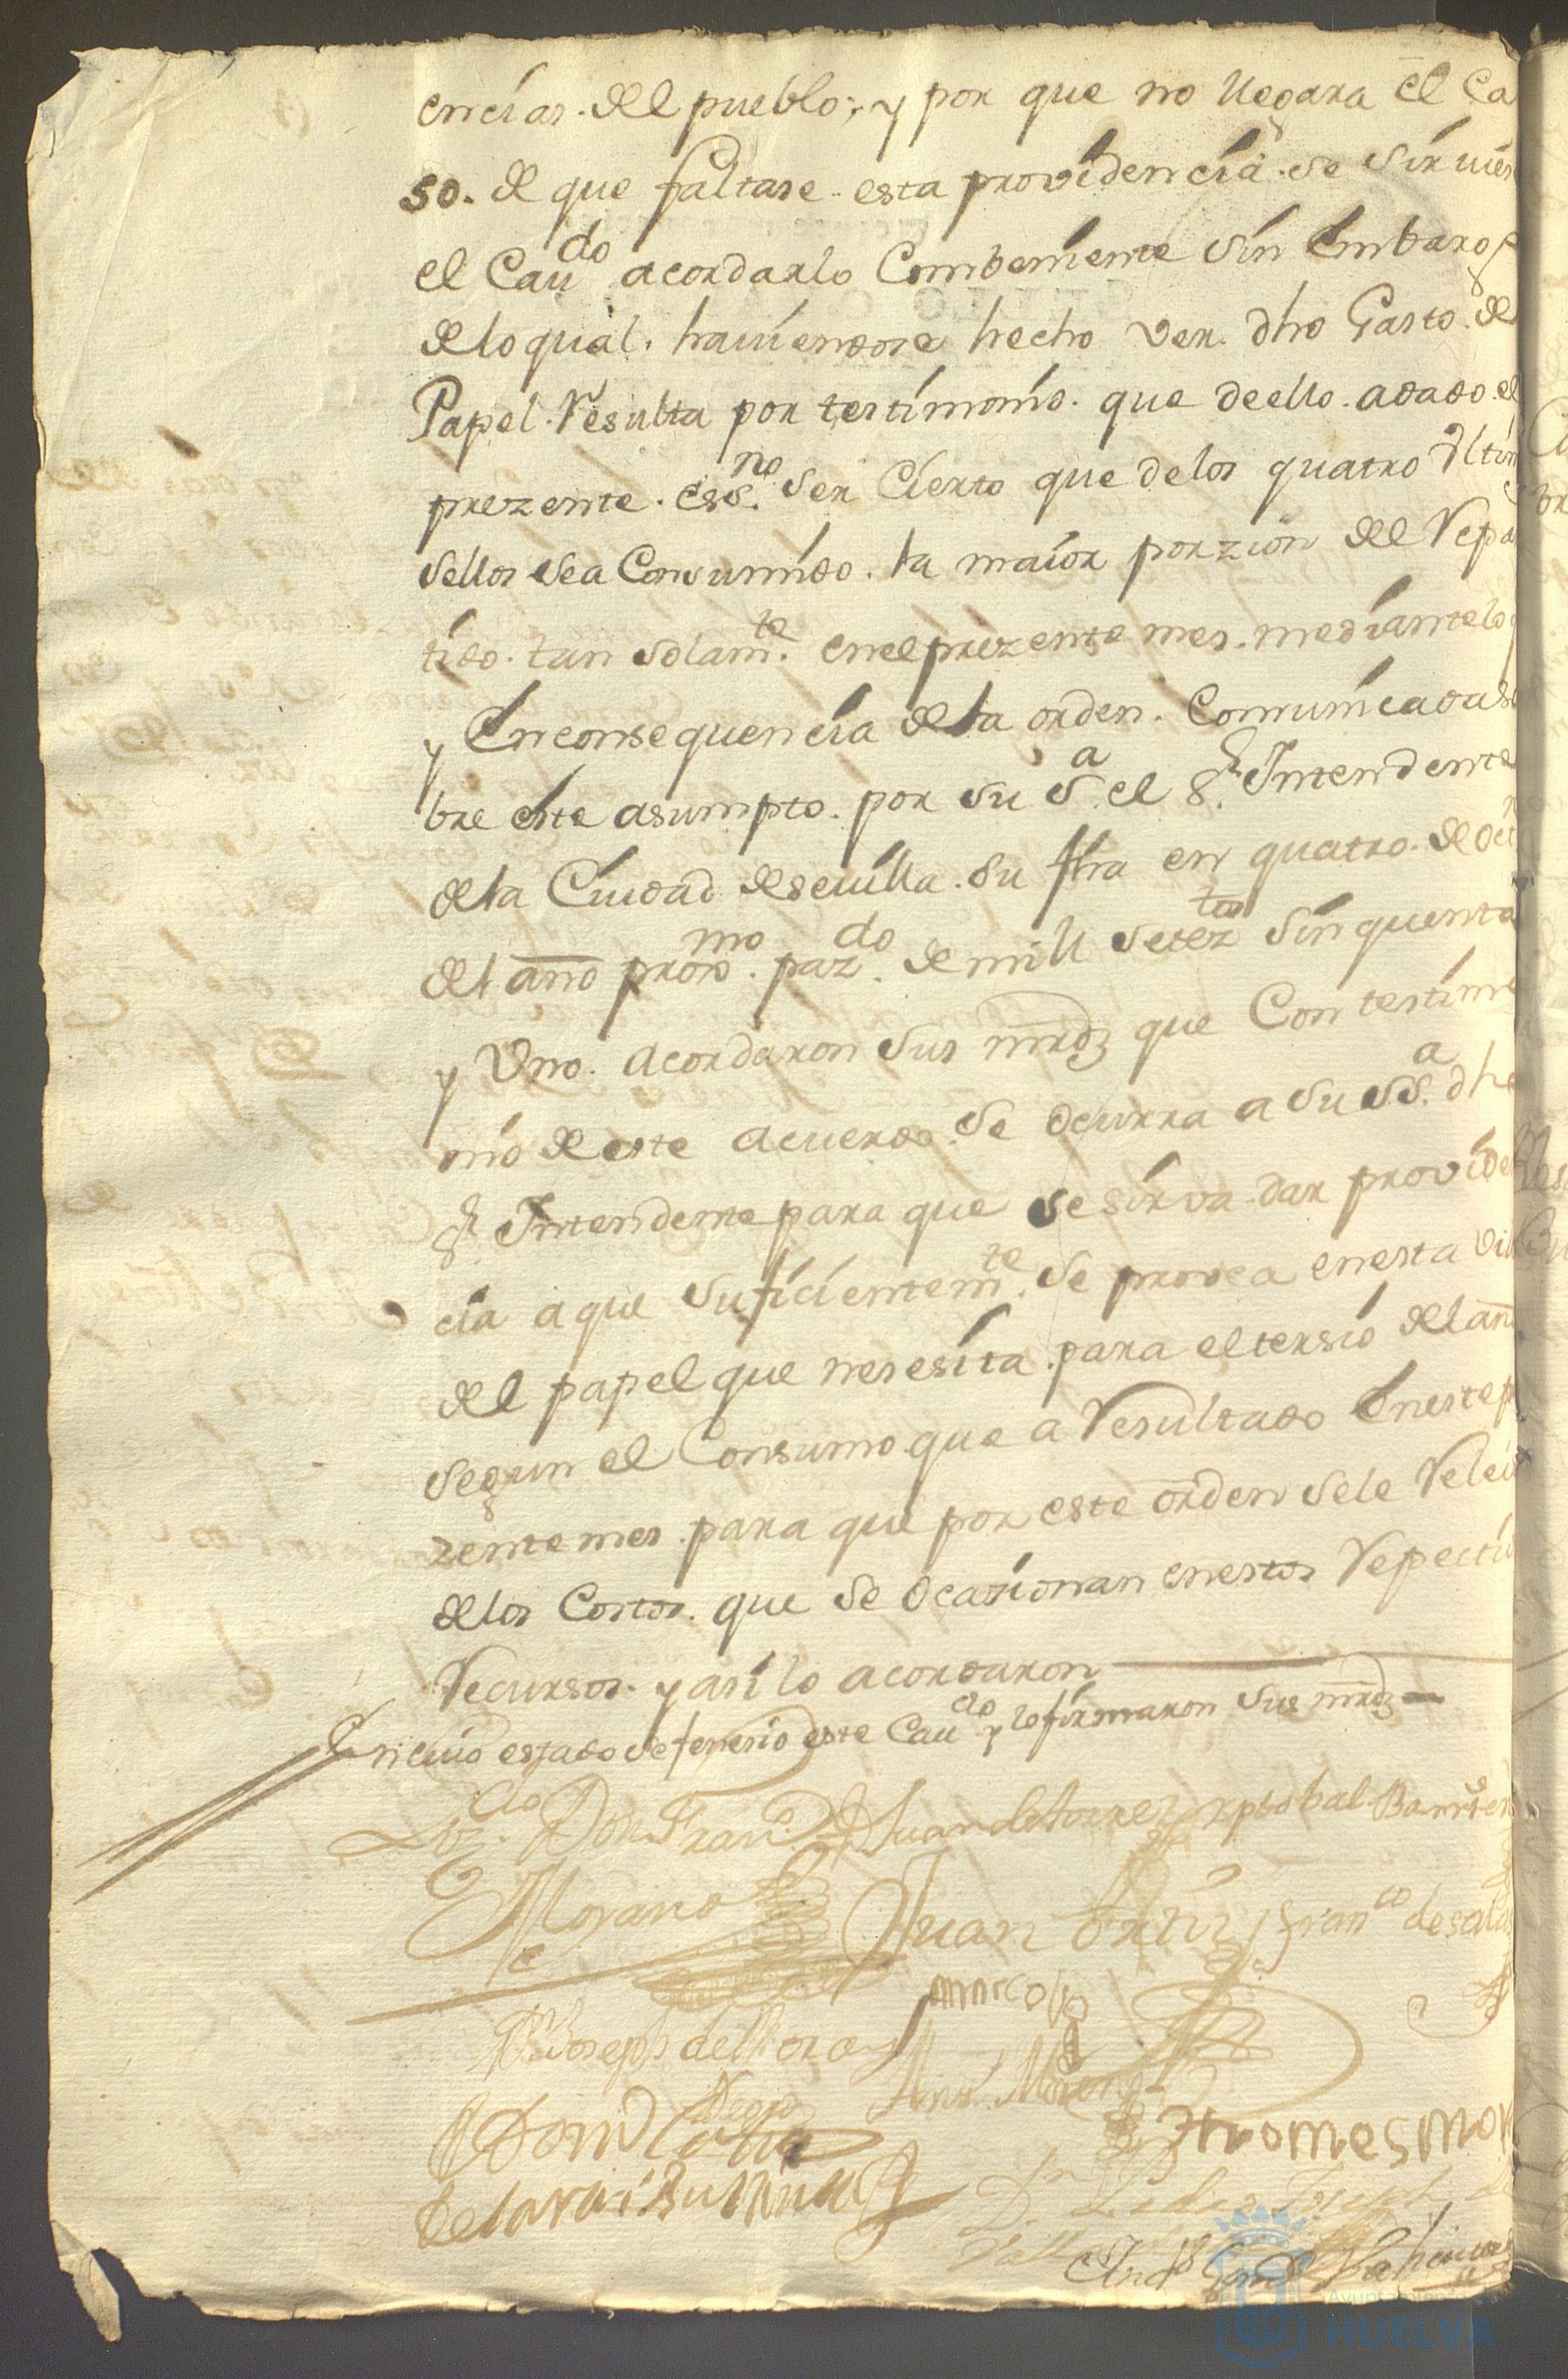 encias. del pueblo; y por que no llegara el ca
so. de que faltase esta providencia. se sirvies
el Caudo acordarlo Combeniente sin embargo
de lo qual. haviendose hecho ver. dho Gasto. de
Papel. Resulta por testimonio. que de ello. a dado. el
prezente. essno. ser Cierto que delos quatro Ultim
sellos sea Consumido. la maior porzion del Repa
tido. tan solamte. en el prezente mes. mediante lo q
y En consequencia de la orden. Comunicada so
bre este asumpto. por su Sa. el Sr. Intendente
de la Ciudad de sevilla. su fha en quatro. de oct
del año proxmo. pazdo. de mill seteztos sinquenta
y Uno. acordaron sus mrdz que Con testimo
nio de este acuerdo. se ocurra a su sSa. dho
Sr Intendente para que se sirva dar provide
cia a que suficientemte. se provea en esta Vill
del papel que nesesita. para el tersio del año
segun el Consumo que a Resultado En este p
zente mes. para que por este orden se le Relev
de los Costos. que se ocasionan en estos Repecti
Recursos. y asi lo acordaron
En cuio estado se fenesio este Caudo y lo firmaron sus mrdz
Lizdo. Don Franco Juan de torres xptobal Barrter
Morano Juan Ortiz Franco de salas
marcos
Joseph del
Anto. Moreno
Diego
thomes mor
Dn Pedro Joseph de
Ayuntamiento
HUELVA